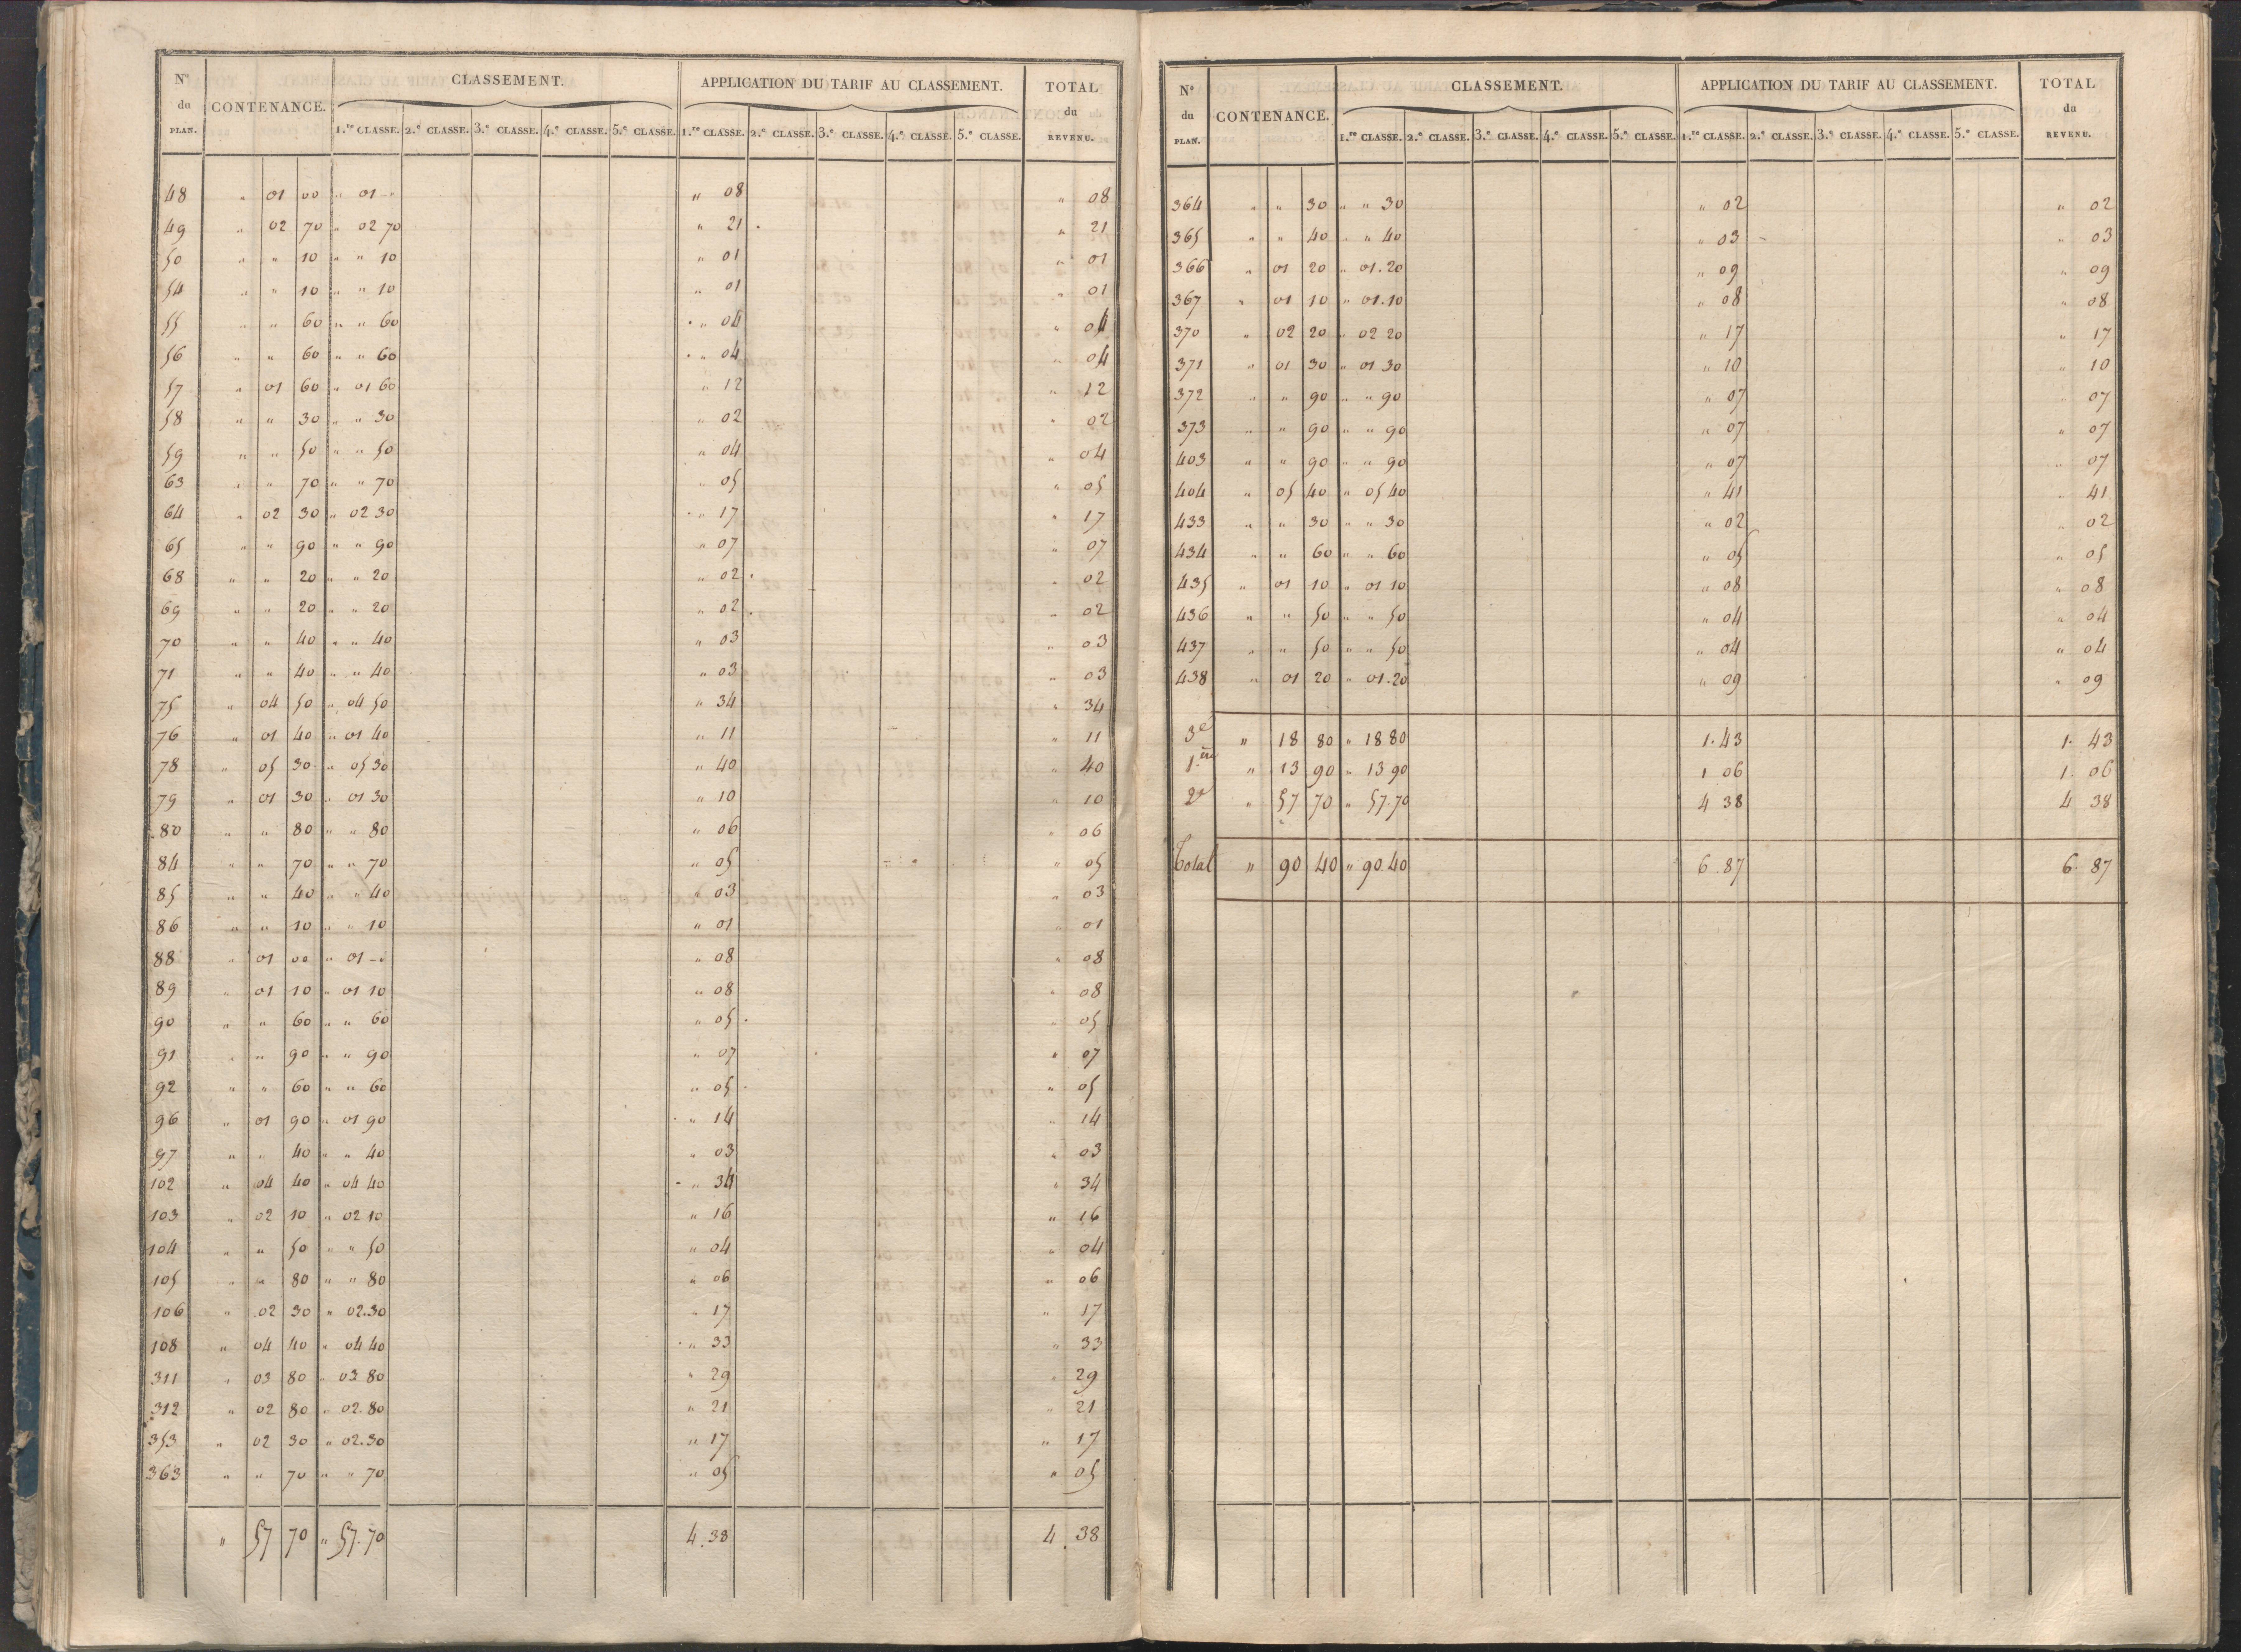 N.º du PLAN. CONTENANCE. CLASSEMENT. APPLICATION DU TARIF AU CLASSEMENT. TOTAL du REVENU.
1.re CLASSE. 2.e CLASSE. 3.e CLASSE. 4.e CLASSE. 5.e CLASSE. 1.re CLASSE. 2.e CLASSE. 3.e CLASSE. 4.e CLASSE. 5.e CLASSE.
48 " 01 00 " 01 - " " 08 " 08
49 " 02 70 " 02 70 " 21 " 21
50 " " 10 " " 10 " 01 " 01
54 " " 10 " " 10 " 01 " 01
55 " " 60 " " 60 " 04 " 04
56 " " 60 " " 60 " 04 " 04
57 " 01 60 " 01 60 " 12 " 12
58 " " 30 " " 30 " 02 " 02
59 " " 50 " " 50 " 04 " 04
63 " " 70 " " 70 " 05 " 05
64 " 02 30 " 02 30 " 17 " 17
65 " " 90 " " 90 " 07 " 07
68 " " 20 " " 20 " 02 " 02
69 " " 20 " " 20 " 02 " 02
70 " " 40 " " 40 " 03 " 03
71 " " 40 " " 40 " 03 " 03
75 " 04 50 " 04 50 " 34 " 34
76 " 01 40 " 01 40 " 11 " 11
78 " 05 30 " 05 30 " 40 " 40
79 " 01 30 " 01 30 " 10 " 10
80 " " 80 " " 80 " 06 " 06
84 " " 70 " " 70 " 05 " 05
85 " " 40 " " 40 " 03 " 03
86 " " 10 " " 10 " 01 " 01
88 " 01 00 " 01 - " " 08 " 08
89 " 01 10 " 01 10 " 08 " 08
90 " " 60 " " 60 " 05 " 05
91 " " 90 " " 90 " 07 " 07
92 " " 60 " " 60 " 05 " 05
96 " 01 90 " 01 90 " 14 " 14
97 " " 40 " " 40 " 03 " 03
102 " 04 40 " 04 40 " 34 " 34
103 " 02 10 " 02 10 " 16 " 16
104 " " 50 " " 50 " 04 " 04
105 " " 80 " " 80 " 06 " 06
106 " 02 30 " 02.30 " 17 " 17
108 " 04 40 " 04 40 " 33 " 33
311 " 03 80 " 03 80 " 29 " 29
312 " 02 80 " 02.80 " 21 " 21
353 " 02 30 " 02.30 " 17 " 17
363 " " 70 " " 70 " 05 " 05
" 57 70 " 57.70 4.38 4.38
N.º du PLAN. CONTENANCE. CLASSEMENT. APPLICATION DU TARIF AU CLASSEMENT. TOTAL du REVENU.
1.re CLASSE. 2.e CLASSE. 3.e CLASSE. 4.e CLASSE. 5.e CLASSE. 1.re CLASSE. 2.e CLASSE. 3.e CLASSE. 4.e CLASSE. 5.e CLASSE.
364 " " 30 " " 30 " 02 " 02
365 " " 40 " " 40 " 03 " 03
366 " 01 20 " 01.20 " 09 " 09
367 " 01 10 " 01.10 " 08 " 08
370 " 02 20 " 02 20 " 17 " 17
371 " 01 30 " 01 30 " 10 " 10
372 " " 90 " " 90 " 07 " 07
373 " " 90 " " 90 " 07 " 07
403 " " 90 " " 90 " 07 " 07
404 " 05 40 " 05 40 " 41 " 41
433 " " 30 " " 30 " 02 " 02
434 " " 60 " " 60 " 05 " 05
435 " 01 10 " 01 10 " 08 " 08
436 " " 50 " " 50 " 04 " 04
437 " " 50 " " 50 " 04 " 04
438 " 01 20 " 01.20 " 09 " 09
3e " 18 80 " 18 80 1.43 1.43
1.ere " 13 90 " 13 90 1 06 1.06
2e " 57 70 " 57.70 4 38 4 38
Total " 90 40 " 90.40 6.87 6.87